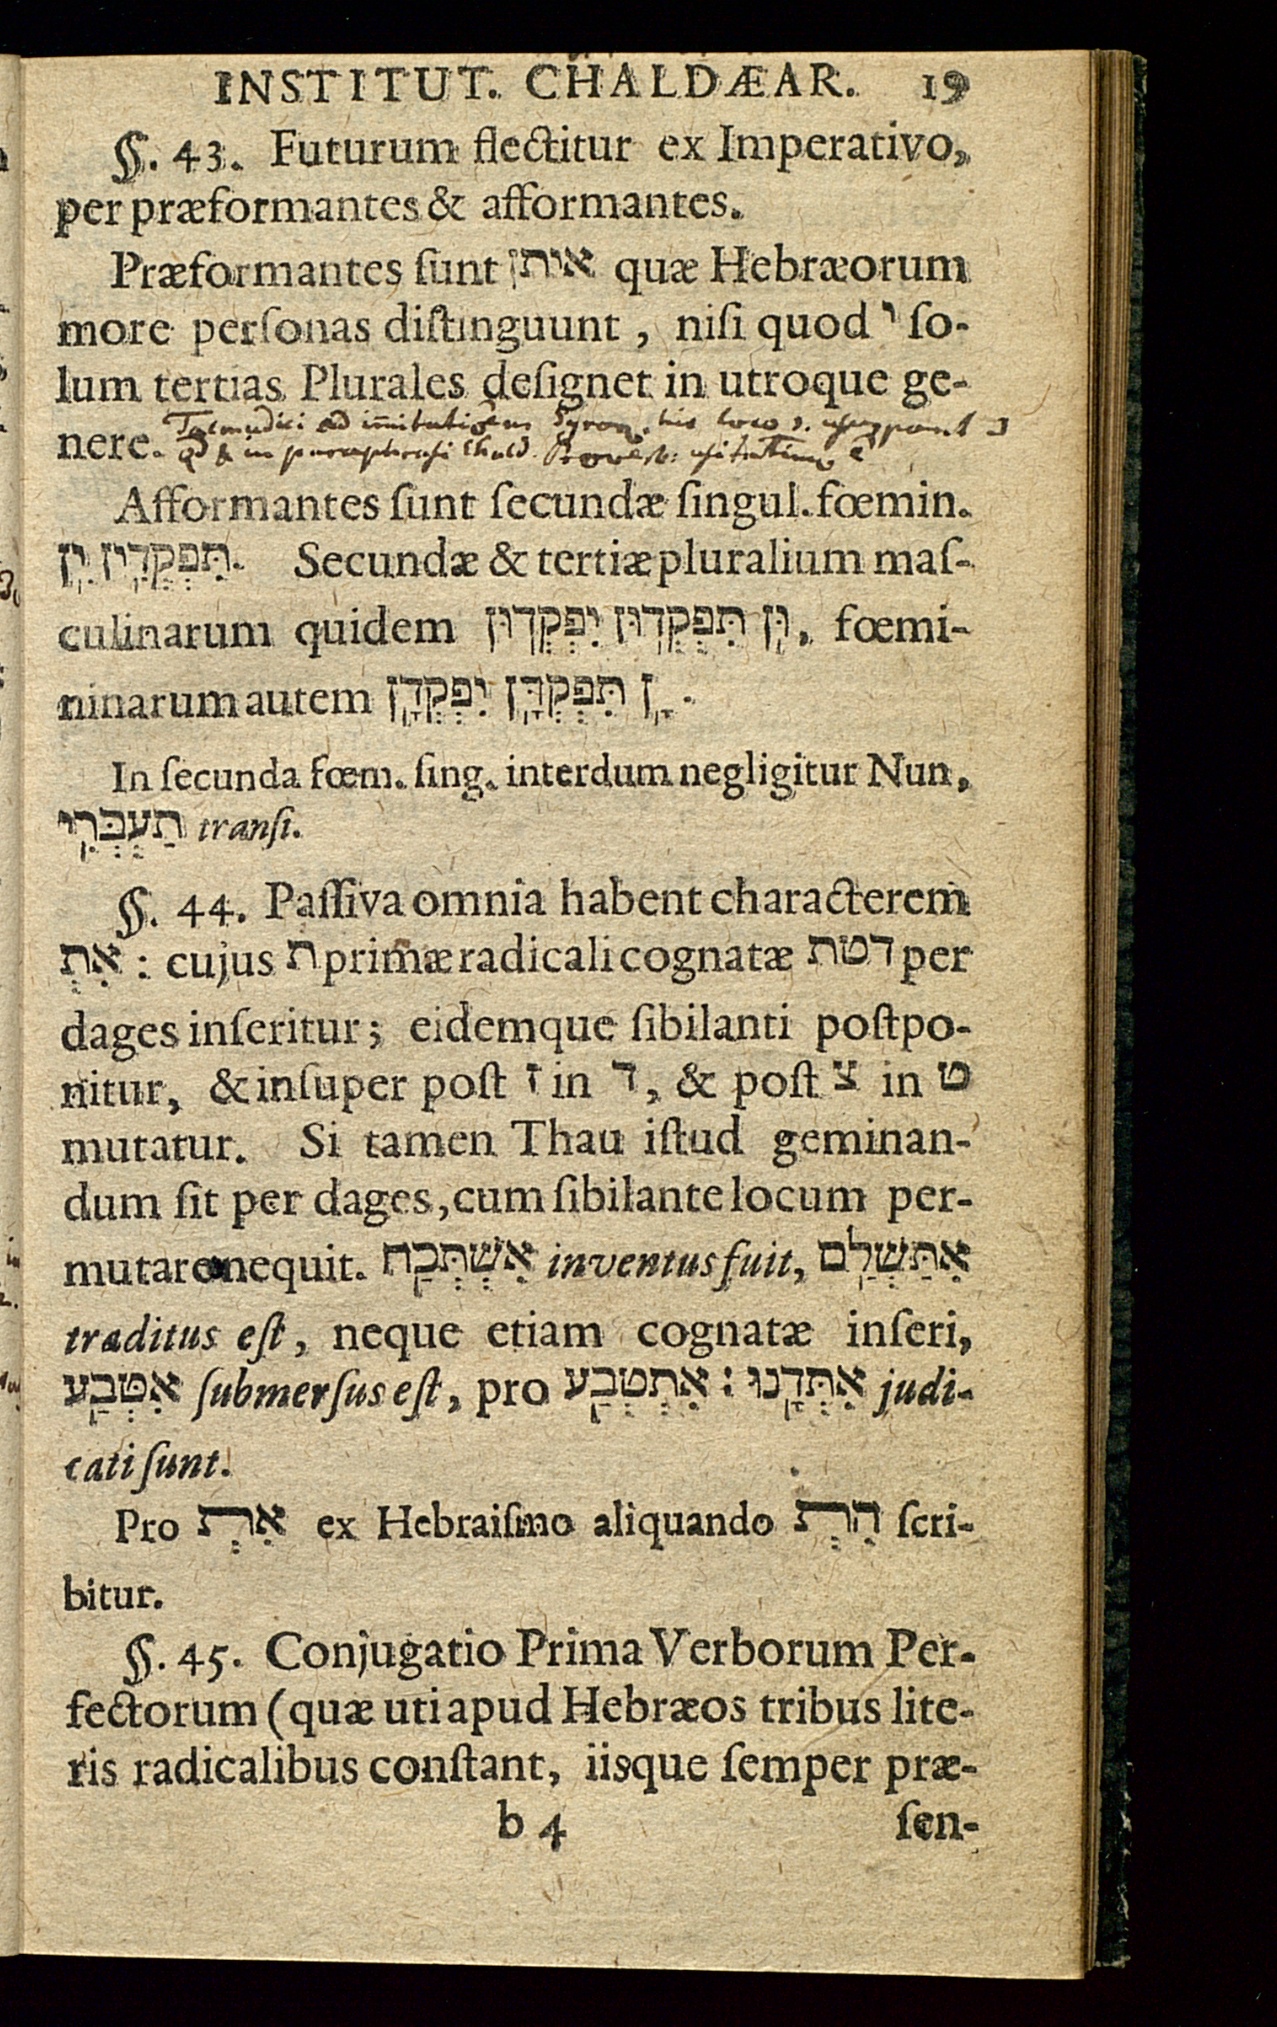 INSTITUT. CHALDÆAR. 19
§. 43. Futurum flectitur ex Imperativo,
per præformantes & afformantes.
Præformantes ſunt איתן quæ Hebræorum
more perſonas diſtinguunt, niſi quod י ſo-
lum tertias Plurales deſignet in utroque ge-
nere.
Talmudici ad imitationem Syror. his loco י. uſurpant נ
qd & in paraphraſi Chald. Proverb: uſitatum e
Afformantes ſunt ſecundæ ſingul. fœmin.
תִּפְקְדִין ִין. Secundæ & tertiæ pluralium maſ-
culinarum quidem וּן תִּפְקְדוּן יִפְקְדוּן, fœmi-
ninarum autem ָן תִּפְקְדָן יִפְקְדָן.
In ſecunda fœm. ſing. interdum negligitur Nun,
תַעְבְּרִי tranſi.
§. 44. Paſſiva omnia habent characterem
אִתְ : cujus ת primæ radicali cognatæ דטת per
dages inſeritur; eidemque ſibilanti poſtpo-
nitur, & inſuper poſt ז in ד, & poſt צ in ט
mutatur. Si tamen Thau iſtud geminan-
dum ſit per dages, cum ſibilante locum per-
mutare nequit. אִשְׁתְּכַח inventus fuit, אִתַּשְׁלַם
traditus eſt, neque etiam cognatæ inſeri,
אִטְּבַע ſubmerſus eſt, pro אִתְטְבַע : אִתְּדָנוּ judi-
cati ſunt.
Pro אִתְ ex Hebraiſmo aliquando הִתְ ſcri-
bitur.
§. 45. Conjugatio Prima Verborum Per-
fectorum (quæ uti apud Hebræos tribus lite-
ris radicalibus conſtant, iisque ſemper præ-
b 4 ſen-